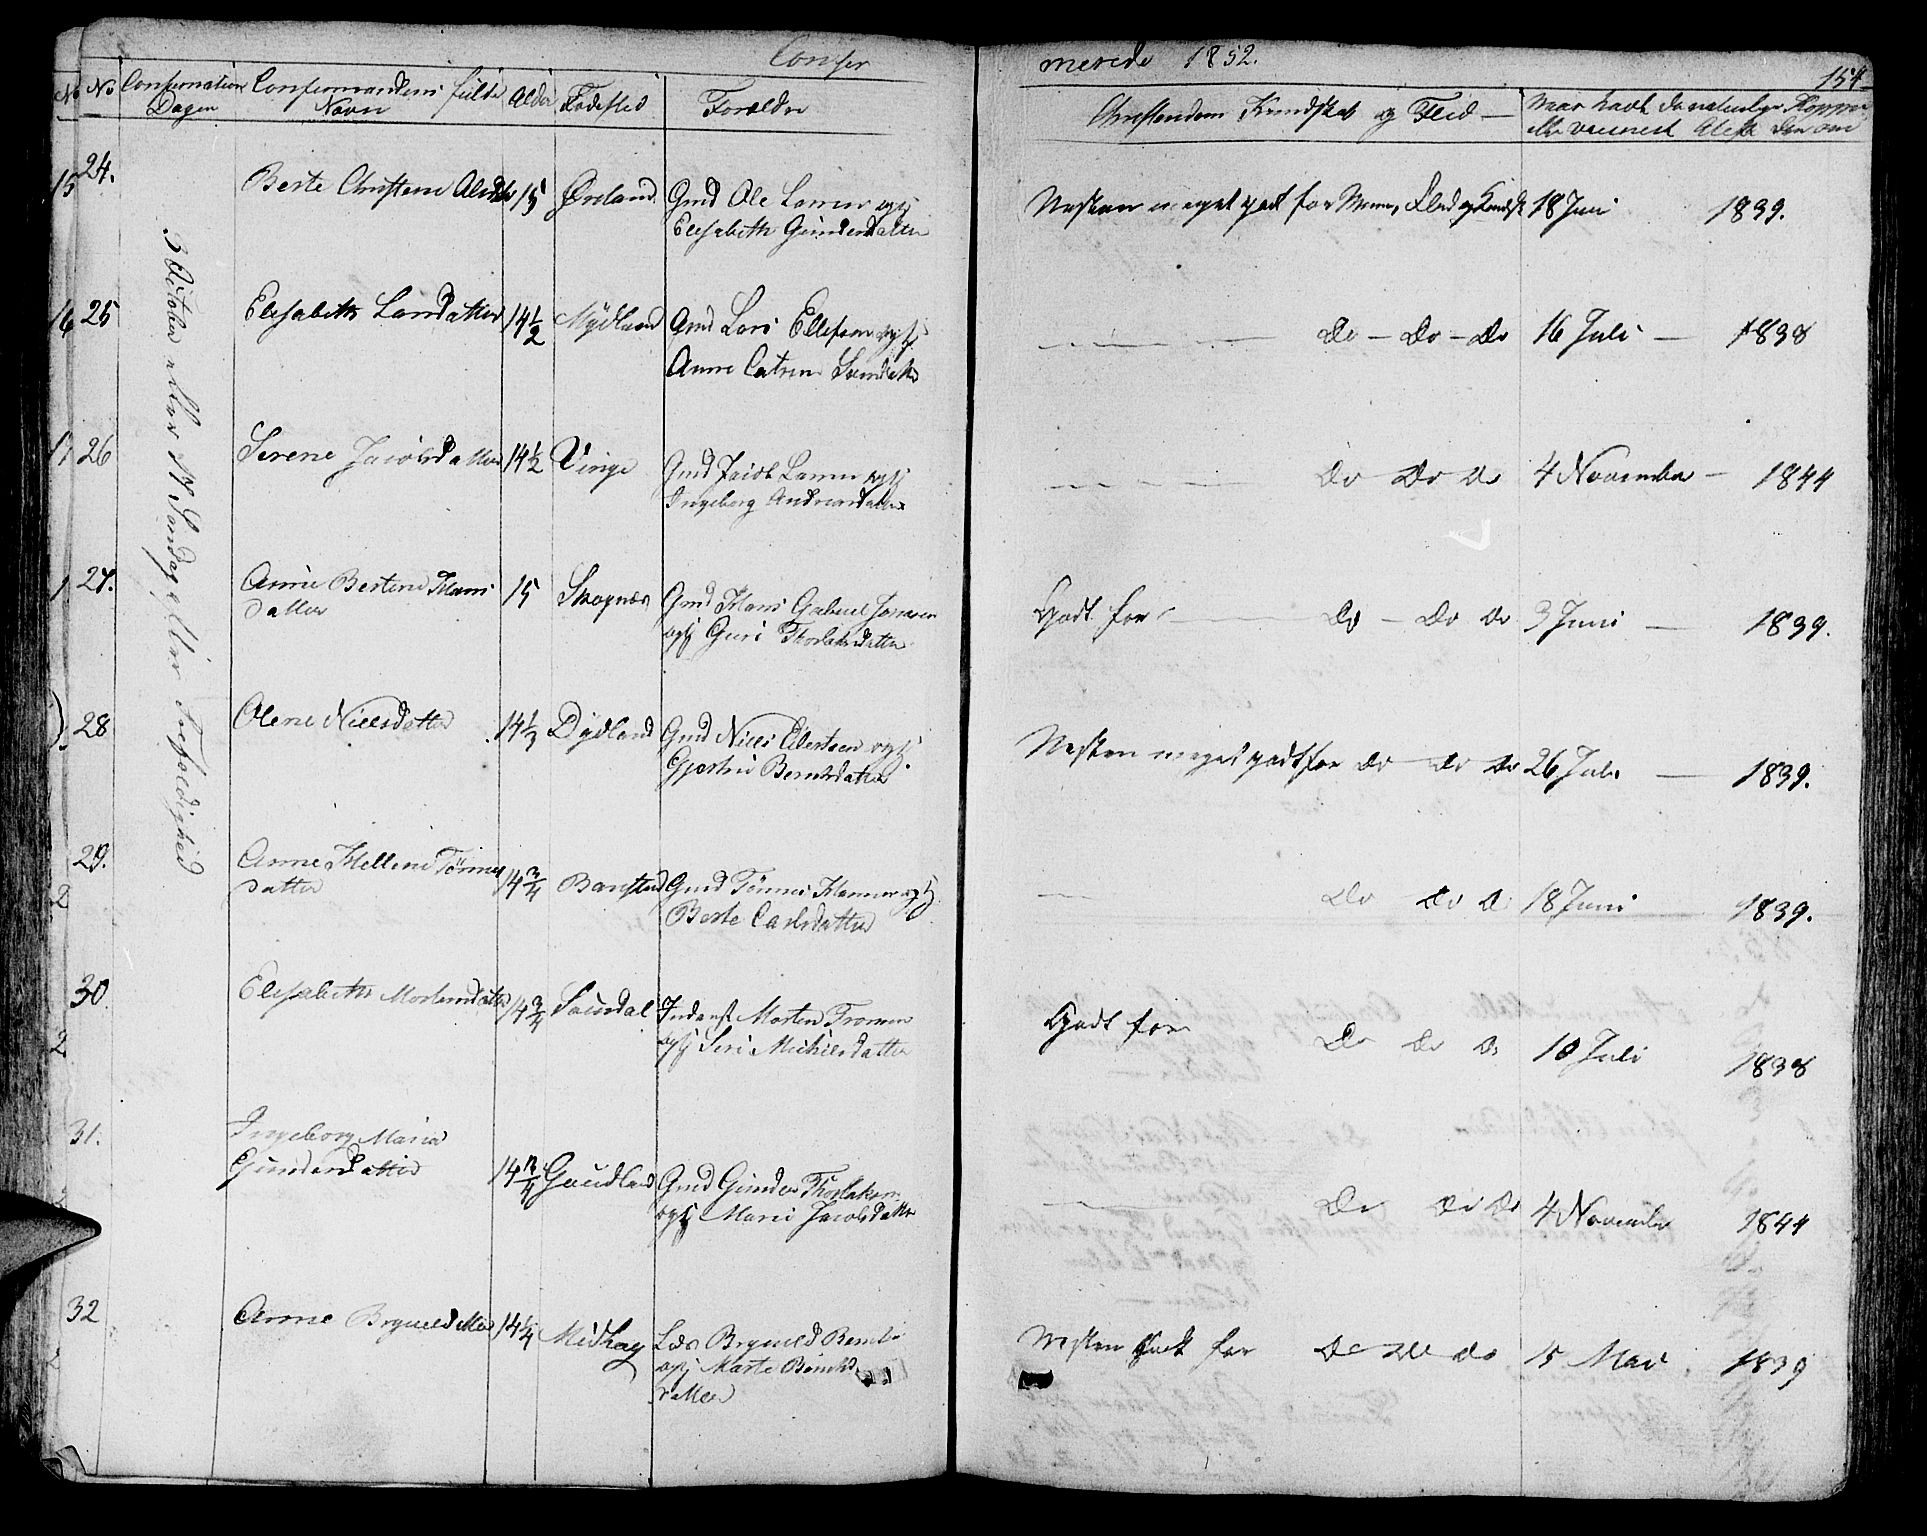 Confir merede 1852.
154
No No Confirmations Dagen Confirmandens fulde Navn Alder Fødested Forældre
Christendoms Kundskab og Flid Naar havt de naturlige Kopper eller vaccineret Attest den om
3 October eller 17 Søndag efter Trefoldighed
15 24. Berte Christene Olsdtr 15 Øreland Gmd Ole Larsen og hj
Elisabeth Gundersdatter
Næsten meget godt for 18 Juni 1839.
16 25 Elisabeth Larsdatter 14½ Mydland Gmd Lars Ellefsen og hj
Anne Catrine
Do - Do - Do 16 Juli - 1838
17 26 Serene Jacobsdatter 14½ Vinge Gmd Jacob Larsen og hj
Ingeborg Andreasdatter
Do Do Do 4 November - 1844
27. Anne Bertine Hans
datter 15 Skognæs Gmd Hans Gabriel Jonasen
og hj Guri Thorlaksdatter
Godt for - Do - Do Do 3 Juni - 1839.
28 Olene Nielsdatter 14⅓ Dydland Gmd Niels Eilertsen og hj
Gjertrui Berntsdatter
Næsten meget godt for Do - Do Do 26 Juli - 1839.
29. Anne Hellene Tønnes
datter 14¾ Barstad Gmd Tønnes Hansen og hj
Berte Carlsdatter
Do Do D. 18 Juni 1839.
30 Elisabeth Mortensdatter 14¾ Soundal Inderst Morten Tronsen
og hj Siri Michelsdatter
Godt for Do Do Do 10 Juli 1838
31. Ingeborg Maria
Gundersdatter 14 Gaudland Gmd Gunder Thorlaksen
og hj Maria Jacobsdatter
Do Do Do 4 November 1844
32 Anne Brynildsdatter 14¼ Midhag Løs Brynild Bernts
og hj Marte Berents
datter
Næsten Godt for Do Do Do 15 Mai 1839